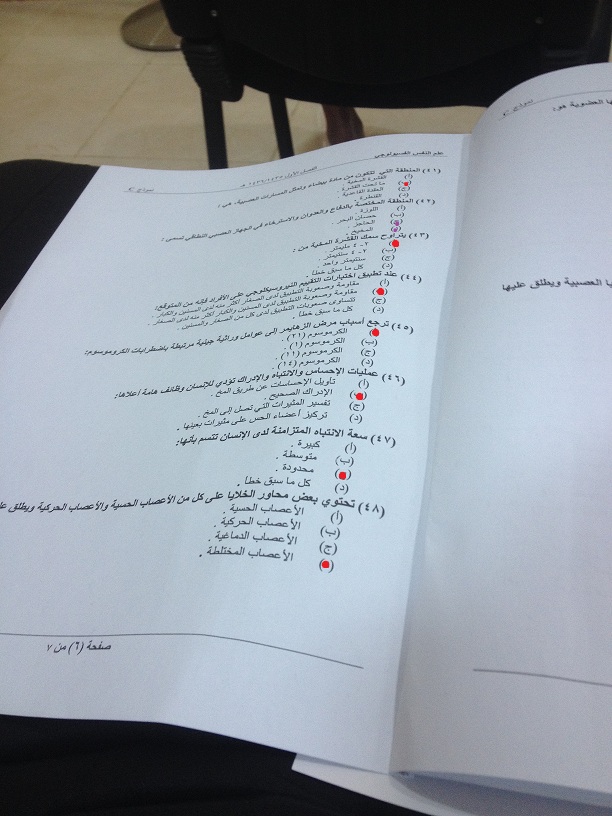 علم النفس الفسيولوجي
الفصل الأول ١٤٣٥/١٤٣٦ هـ
نموذج C
(٤١) المنطقة التي تتكون من مادة بيضاء وتمثل المسارات العصبية، هي:
(أ) القشرة المخية.
(ب) ما تحت القشرة.
(ج) العقدة القاعدية.
(د) القنطرة.
(٤٢) المنطقة المختصة بالدفاع والعدوان والاسترخاء في الجهاز العصبي النطاقي تسمى:
(أ) اللوزة.
(ب) حصان البحر.
(ج) الحاجز.
(د) المخيخ.
(٤٣) يتراوح سمك القشرة المخية من:
(أ) ٢-٤ مليمتر.
(ب) ٢-٤ سنتيمتر.
(ج) سنتيمتر واحد.
(د) كل ما سبق خطأ.
(٤٤) عند تطبيق اختبارات التقييم النيروسيكلوجي على الأفراد فإنه من المتوقع:
(أ) مقاومة وصعوبة التطبيق لدى الصغار أكثر منه لدى المسنين والكبار.
(ب) مقاومة وصعوبة التطبيق لدى المسنين والكبار أكثر منه لدى الصغار.
(ج) تتساوى صعوبات التطبيق لدى كل من الصغار والمسنين.
(د) كل ما سبق خطأ.
(٤٥) ترجع أسباب مرض الزهايمر إلى عوامل وراثية جينية مرتبطة باضطرابات الكروموسوم:
(أ) الكرموسوم (٢١).
(ب) الكرموسوم (١).
(ج) الكرموسوم (١١).
(د) الكرموسوم (١٤).
(٤٦) عمليات الإحساس والانتباه والإدراك تؤدي للإنسان وظائف هامة أعلاها:
(أ) تأويل الإحساسات عن طريق المخ.
(ب) الإدراك الصحيح.
(ج) تفسير المثيرات التي تصل إلى المخ.
(د) تركيز أعضاء الحس على مثيرات بعينها.
(٤٧) سعة الانتباه المتزامنة لدى الإنسان تتسم بأنها:
(أ) كبيرة.
(ب) متوسطة.
(ج) محدودة.
(د) كل ما سبق خطأ.
(٤٨) تحتوي بعض محاور الخلايا على كل من الأعصاب الحسية والأعصاب الحركية ويطلق
(أ) الأعصاب الحسية.
(ب) الأعصاب الحركية.
(ج) الأعصاب الدماغية.
(د) الأعصاب المختلطة.
صفحة (٦) من ٧
نموذج C
ها العضوية هو:
ها العصبية ويطلق عليها